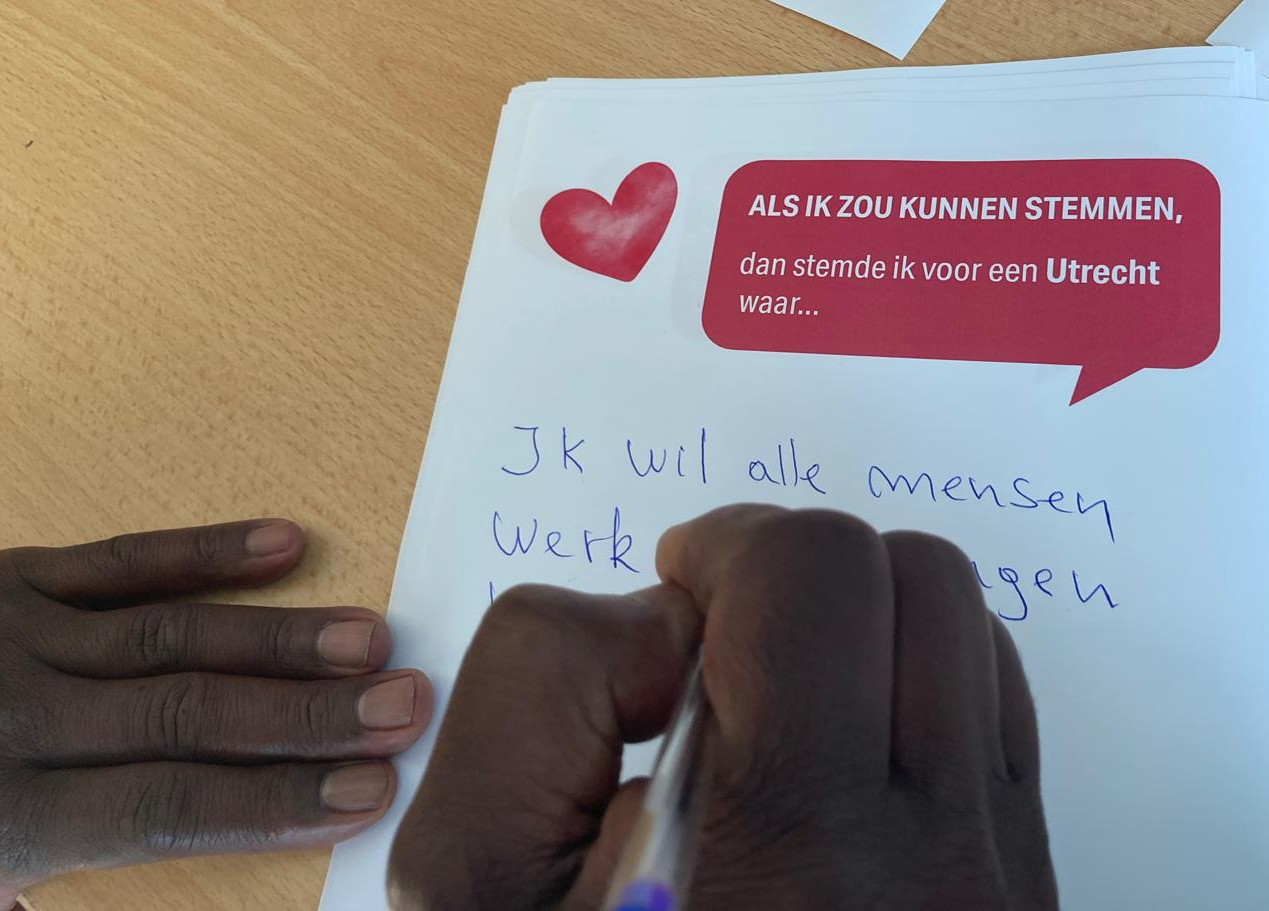 ALS IK ZOU KUNNEN STEMMEN,
dan stemde ik voor een Utrecht
waar...
Ik wil alle mensen
werk